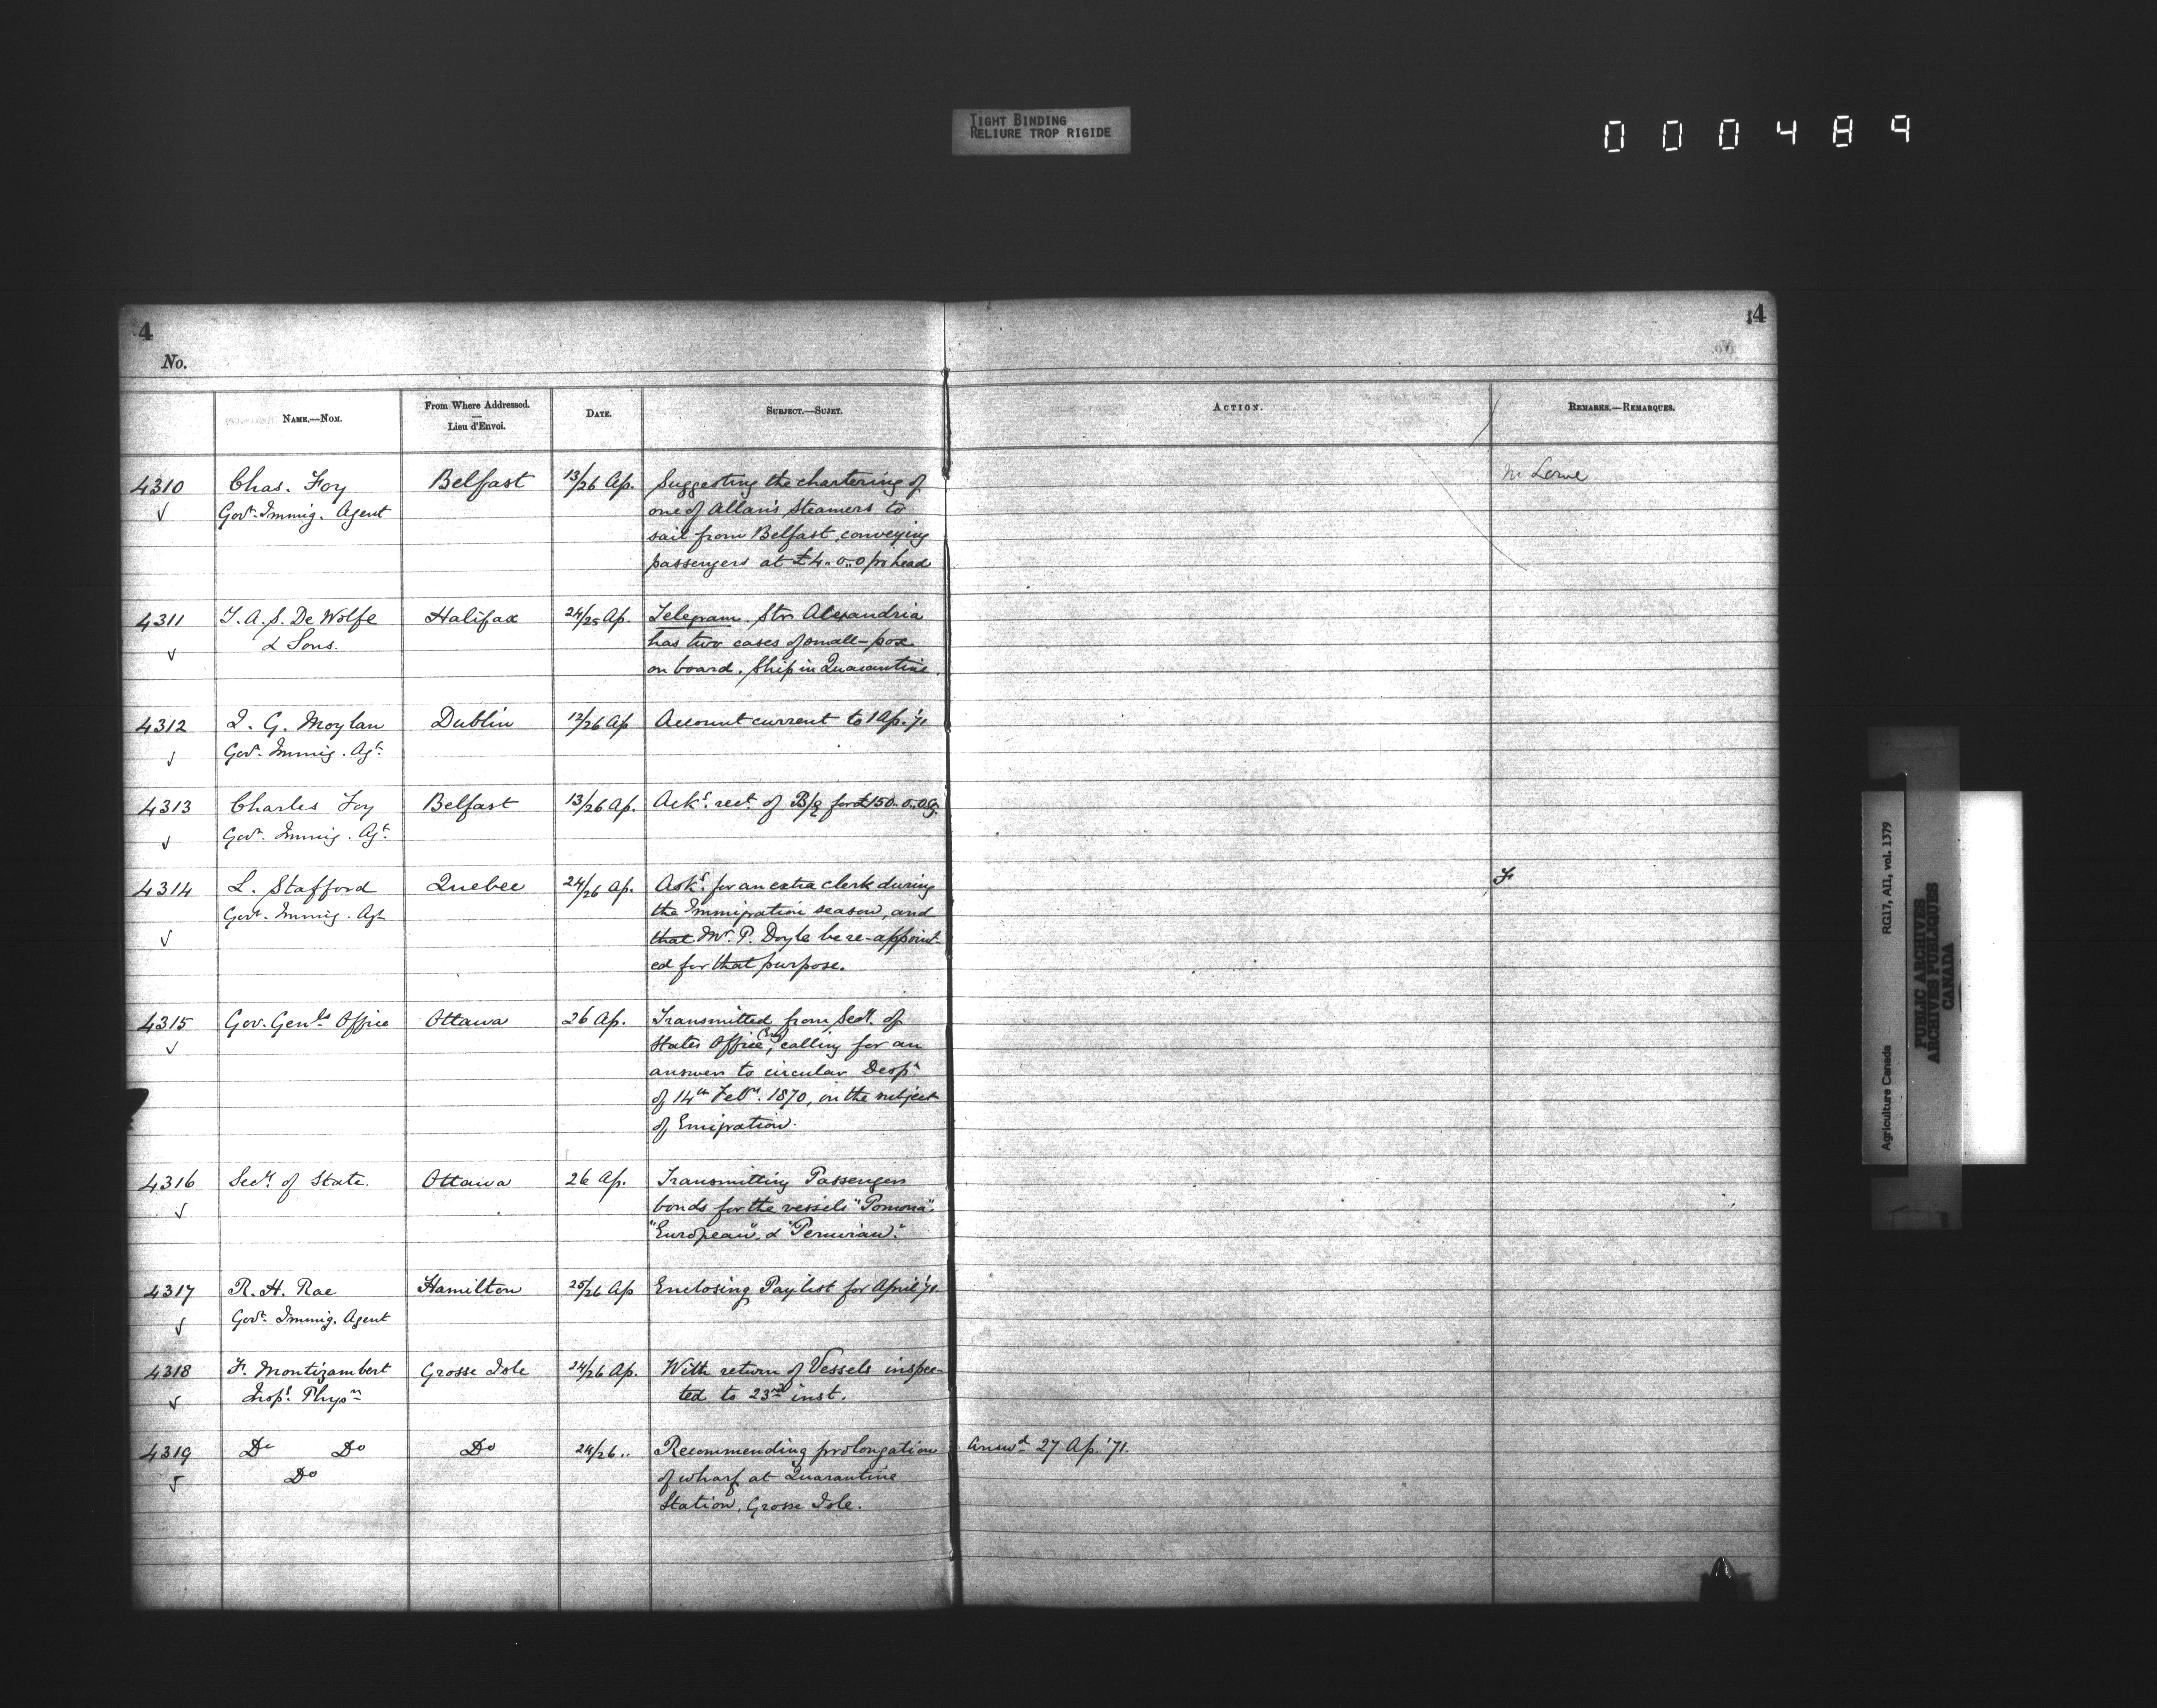 TIGHT BINDING
RELIURE TROP RIGIDE
000489
4
4
No.
NAME.—NOM.
From Where Addressed.
Lieu d'Envoi.
DATE.
SUBJECT.—SUJET.
ACTION.
REMARKS.—REMARQUES.
4310 Chas. Foy Belfast 13/26 Ap. Suggesting the chartering of Lowe
Govt. Immig. Agent one of Allan's Steamers to
sail from Belfast, conveying
passengers at £4..0..0 pr head
4311 T. A. S. De Wolfe Halifax 24/25 Ap. Telegram. Str Alexandria
& Sons. has two cases of small-pox
on board. Ship in Quarantine.
4312 J. G. Moylan Dublin 12/26 Ap Account current to 1 Ap. '71
Govt. Immig. Agt.
4313 Charles Foy Belfast 13/26 Ap. Acks. rect. of B/E for £150..0..0 Sg.
Govt. Immig. Agt.
4314 L. Stafford Quebec 24/26 Ap. Asks. for an extra clerk during
Govt. Immig. Agt the Immigration season, and
that Mr. P. Doyle be re-appoint-
ed for that purpose.
4315 Gov. Genls Office Ottawa 26 Ap. Transmitted from Secy. of
States Office (Eng), calling for an
answer to circular Desph
of 14th Feby. 1870, on the subject
of Emigration.
4316 Secy. of State. Ottawa 26 Ap. Transmitting Passengers
bonds for the vessels "Pomona",
"European", & "Peruvian".
4317 R. H. Rae Hamilton 25/26 Ap Enclosing Pay list for April '71.
Govt. Immig. Agent
4318 F. Montizambert Grosse Isle 24/26 Ap. With return of Vessels inspec-
Inspg. Physn ted to 23rd inst.
4319 Do Do Do 24/26 .. Recommending prolongation Answd 27 Ap. '71.
Do of wharf at Quarantine
Station, Grosse Isle.
Agriculture Canada RG17, AII, vol. 1379
PUBLIC ARCHIVES
ARCHIVES PUBLIQUES
CANADA